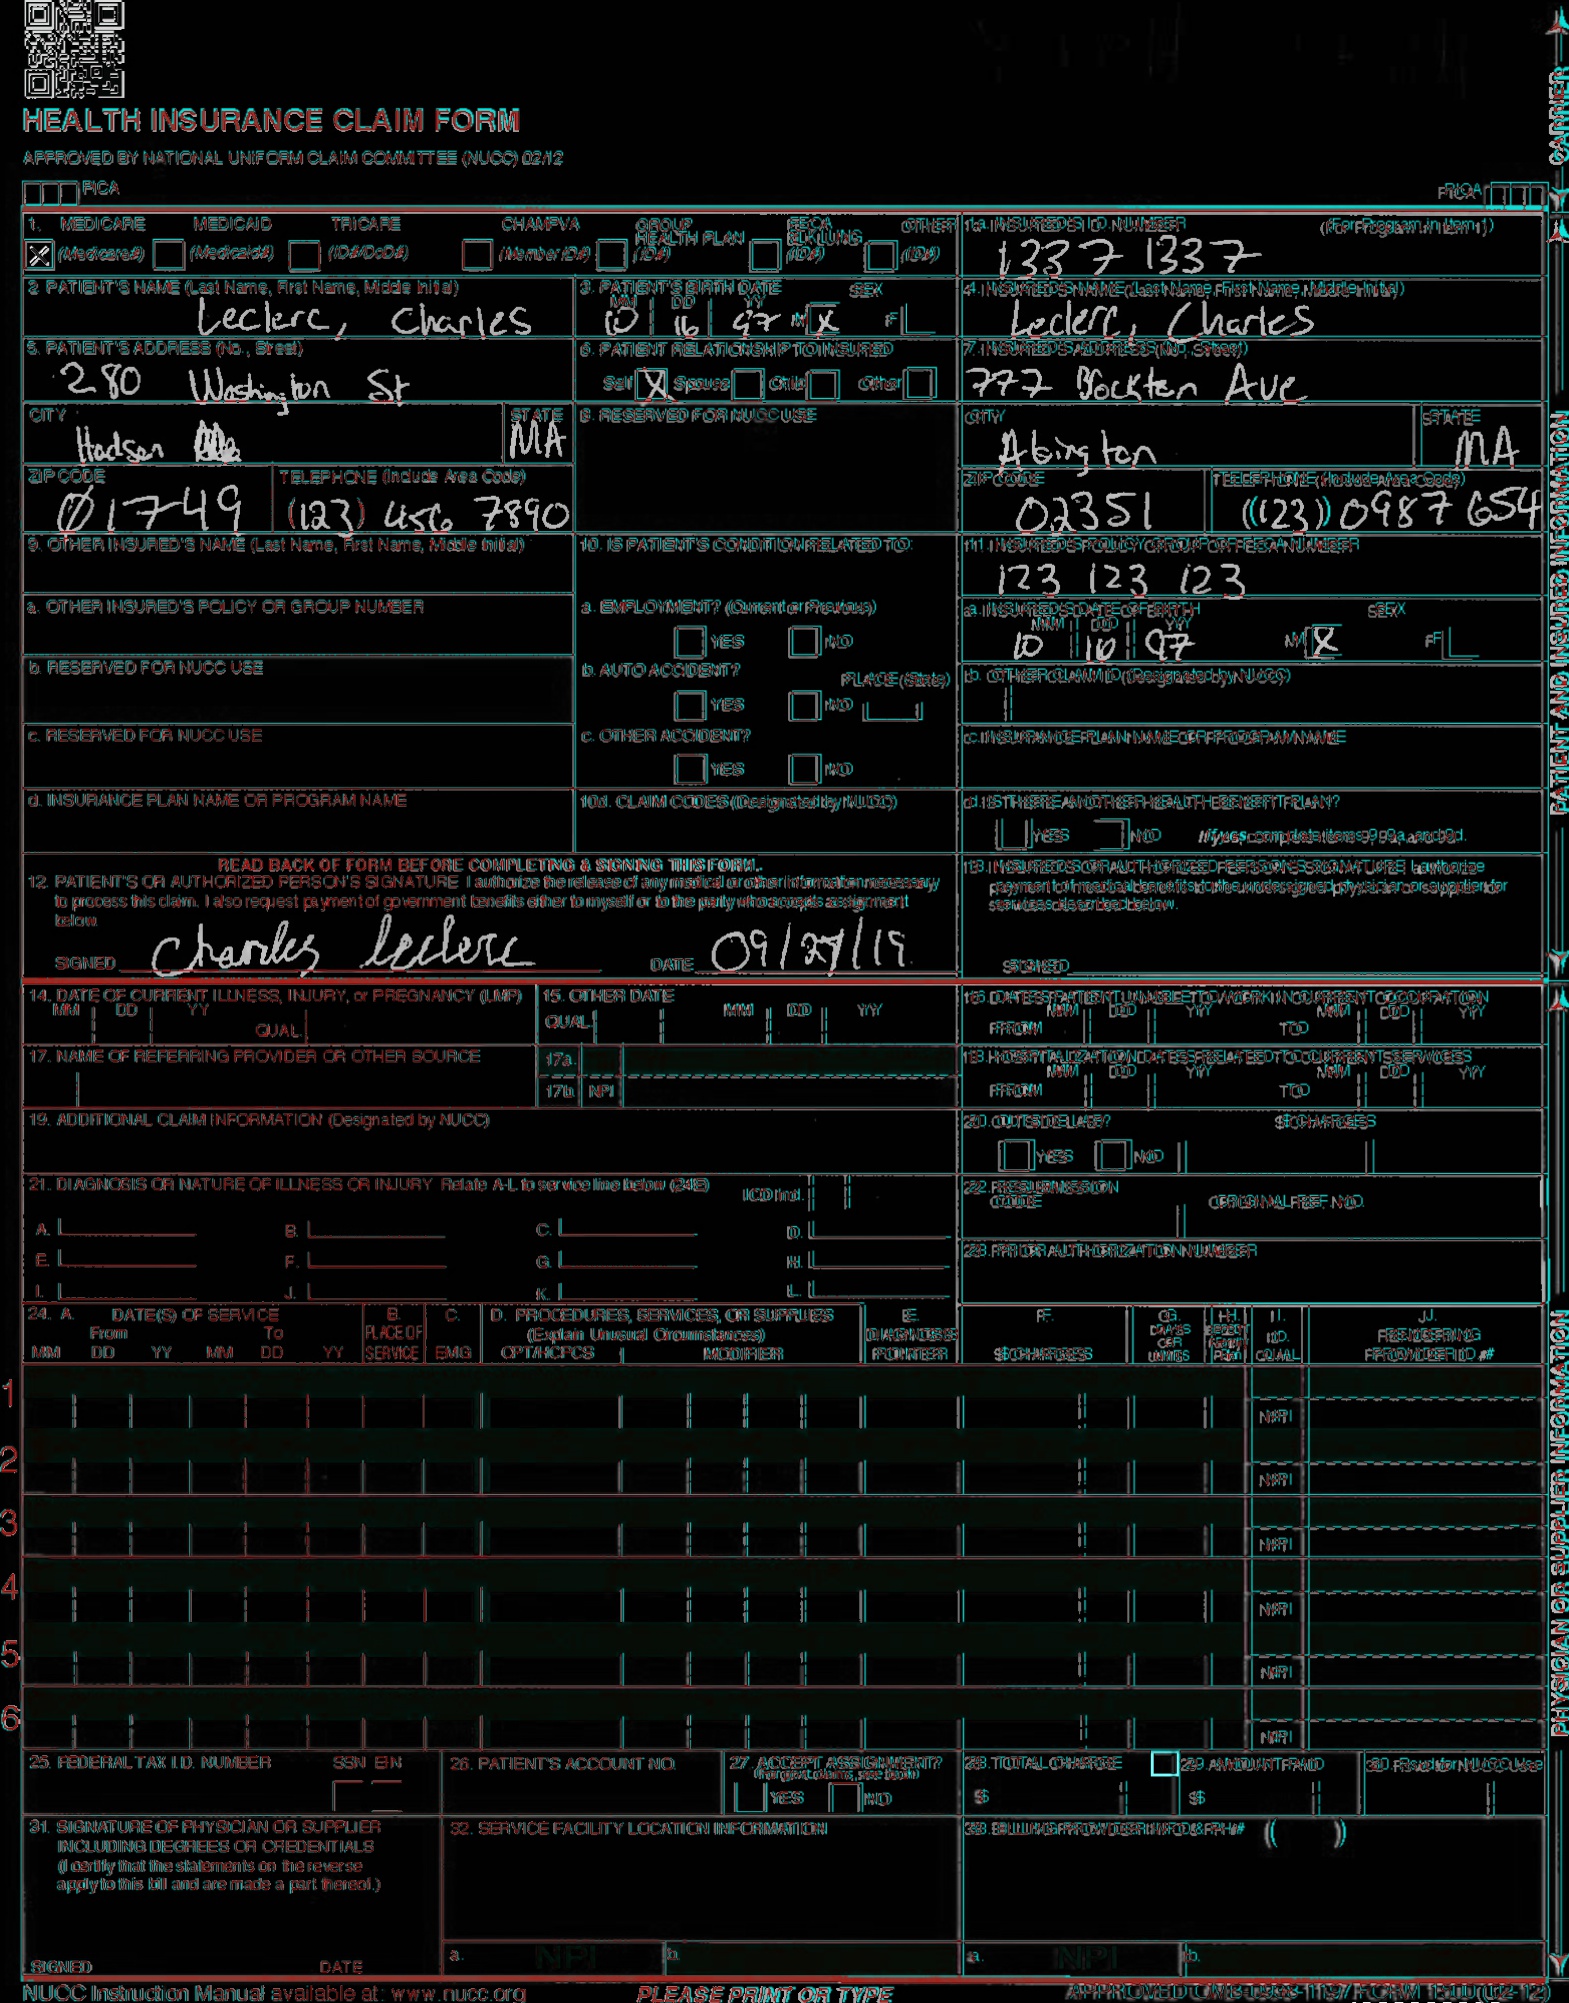 HEALTH INSURANCE CLAIM FORM
APPROVED BY NATIONAL UNIFORM CLAIM COMMITTEE (NUCC) 02/12
PICA
PICA
CARRIER
1. MEDICARE MEDICAID TRICARE CHAMPVA GROUP HEALTH PLAN FECA BLK LUNG OTHER
X (Medicare#) (Medicaid#) (ID#/DoD#) (Member ID#) (ID#) (ID#) (ID#)
1a. INSURED'S I.D. NUMBER (For Program in Item 1)
1337 1337
2. PATIENT'S NAME (Last Name, First Name, Middle Initial)
Leclerc, Charles
3. PATIENT'S BIRTH DATE SEX
MM DD YY
10 16 97 M X F
4. INSURED'S NAME (Last Name, First Name, Middle Initial)
Leclerc, Charles
5. PATIENT'S ADDRESS (No., Street)
280 Washington St
6. PATIENT RELATIONSHIP TO INSURED
Self X Spouse Child Other
7. INSURED'S ADDRESS (No., Street)
777 Brockton Ave
CITY
Hudson
STATE
MA
8. RESERVED FOR NUCC USE
CITY
Abington
STATE
MA
ZIP CODE
01749
TELEPHONE (Include Area Code)
(123) 456 7890
ZIP CODE
02351
TELEPHONE (Include Area Code)
(123) 0987 654
9. OTHER INSURED'S NAME (Last Name, First Name, Middle Initial)
10. IS PATIENT'S CONDITION RELATED TO:
11. INSURED'S POLICY GROUP OR FECA NUMBER
123 123 123
a. OTHER INSURED'S POLICY OR GROUP NUMBER
a. EMPLOYMENT? (Current or Previous)
YES NO
a. INSURED'S DATE OF BIRTH SEX
MM DD YY
10 16 97 M X F
b. RESERVED FOR NUCC USE
b. AUTO ACCIDENT? PLACE (State)
YES NO
b. OTHER CLAIM ID (Designated by NUCC)
c. RESERVED FOR NUCC USE
c. OTHER ACCIDENT?
YES NO
c. INSURANCE PLAN NAME OR PROGRAM NAME
d. INSURANCE PLAN NAME OR PROGRAM NAME
10d. CLAIM CODES (Designated by NUCC)
d. IS THERE ANOTHER HEALTH BENEFIT PLAN?
YES NO If yes, complete items 9, 9a, and 9d.
READ BACK OF FORM BEFORE COMPLETING & SIGNING THIS FORM.
12. PATIENT'S OR AUTHORIZED PERSON'S SIGNATURE I authorize the release of any medical or other information necessary
to process this claim. I also request payment of government benefits either to myself or to the party who accepts assignment
below.
SIGNED Charles Leclerc DATE 09/27/19
13. INSURED'S OR AUTHORIZED PERSON'S SIGNATURE I authorize
payment of medical benefits to the undersigned physician or supplier for
services described below.
SIGNED
PATIENT AND INSURED INFORMATION
14. DATE OF CURRENT ILLNESS, INJURY, or PREGNANCY (LMP)
MM DD YY
QUAL.
15. OTHER DATE
QUAL. MM DD YY
16. DATES PATIENT UNABLE TO WORK IN CURRENT OCCUPATION
MM DD YY MM DD YY
FROM TO
17. NAME OF REFERRING PROVIDER OR OTHER SOURCE
17a.
17b. NPI
18. HOSPITALIZATION DATES RELATED TO CURRENT SERVICES
MM DD YY MM DD YY
FROM TO
19. ADDITIONAL CLAIM INFORMATION (Designated by NUCC)
20. OUTSIDE LAB? $ CHARGES
YES NO
21. DIAGNOSIS OR NATURE OF ILLNESS OR INJURY Relate A-L to service line below (24E) ICD Ind.
A. B. C. D.
E. F. G. H.
I. J. K. L.
22. RESUBMISSION CODE ORIGINAL REF. NO.
23. PRIOR AUTHORIZATION NUMBER
24. A. DATE(S) OF SERVICE
From To
MM DD YY MM DD YY
B. PLACE OF SERVICE
C. EMG
D. PROCEDURES, SERVICES, OR SUPPLIES
(Explain Unusual Circumstances)
CPT/HCPCS MODIFIER
E. DIAGNOSIS POINTER
F. $ CHARGES
G. DAYS OR UNITS
H. EPSDT Family Plan
I. ID. QUAL.
J. RENDERING PROVIDER ID. #
1 NPI
2 NPI
3 NPI
4 NPI
5 NPI
6 NPI
PHYSICIAN OR SUPPLIER INFORMATION
25. FEDERAL TAX I.D. NUMBER SSN EIN
26. PATIENT'S ACCOUNT NO.
27. ACCEPT ASSIGNMENT?
(For govt. claims, see back)
YES NO
28. TOTAL CHARGE
$
29. AMOUNT PAID
$
30. Rsvd for NUCC Use
31. SIGNATURE OF PHYSICIAN OR SUPPLIER
INCLUDING DEGREES OR CREDENTIALS
(I certify that the statements on the reverse
apply to this bill and are made a part thereof.)
SIGNED DATE
32. SERVICE FACILITY LOCATION INFORMATION
a. NPI b.
33. BILLING PROVIDER INFO & PH # ( )
a. NPI b.
NUCC Instruction Manual available at: www.nucc.org
PLEASE PRINT OR TYPE
APPROVED OMB-0938-1197 FORM 1500 (02-12)